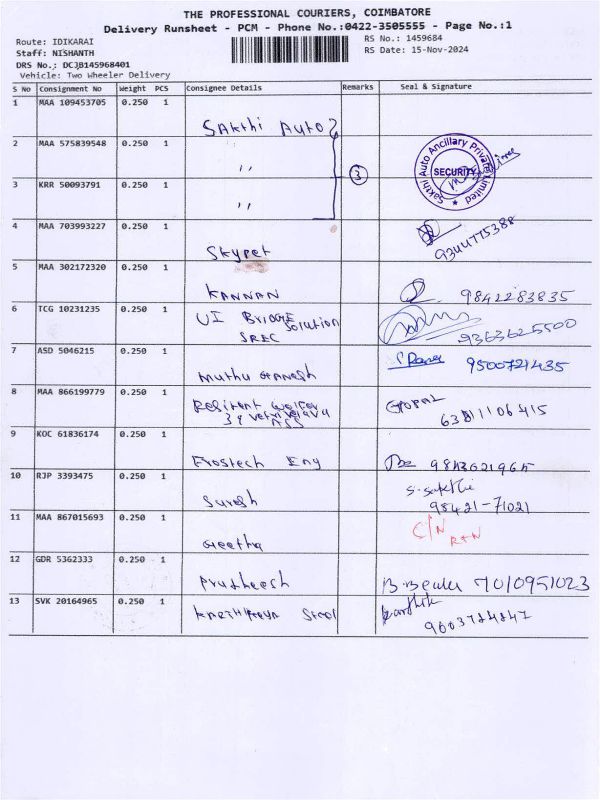 THE PROFESSIONAL COURIERS, COIMBATORE
Delivery Runsheet - PCM - Phone No.:0422-3505555 - Page No.:1
Route: IDIKARAI
RS No.: 1459684
Staff: NISHANTH
RS Date: 15-Nov-2024
DRS No.: DCJB145968401
Vehicle: Two Wheeler Delivery
S No Consignment No Weight PCS Consignee Details Remarks Seal & Signature
1 MAA 109453705 0.250 1
Sakthi Auto
2 MAA 575839548 0.250 1
,, 3
Sakthi Auto Ancillary Private Limited
SECURITY
3 KRR 50093791 0.250 1
,,
4 MAA 703993227 0.250 1
Skypet 9344775388
5 MAA 302172320 0.250 1
KANNAN 9842283835
6 TCG 10231235 0.250 1
UI Bridge Solution
SREC 9363625500
7 ASD 5046215 0.250 1
Muthu Ganesh 9500721435
8 MAA 866199779 0.250 1
Gopal
63811106415
9 KOC 61836174 0.250 1
Frostech Eng 9843621965
10 RJP 3393475 0.250 1
Suresh
98421-71021
11 MAA 867015693 0.250 1
Geetha
C/N
RTN
12 GDR 5362333 0.250 1
Pratheesh 7010951023
13 SVK 20164965 0.250 1
Karthikeya Steel
Karthik
9603784847